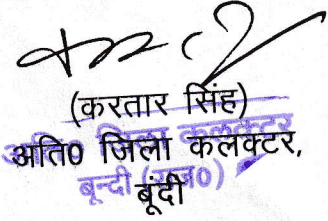 (करतार सिंह)
अति0 जिला कलक्टर,
अति० जिला कलक्टर
बून्दी (राज0)
बूंदी